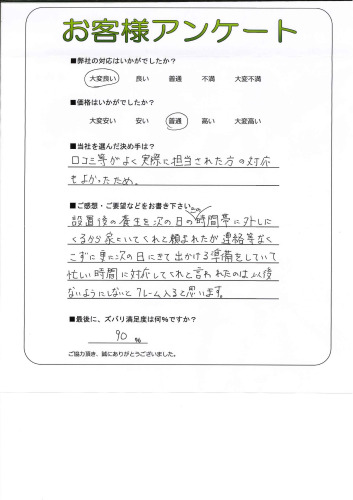 お客様アンケート
■弊社の対応はいかがでしたか?
大変良い 良い 普通 不満 大変不満
■価格はいかがでしたか?
大変安い 安い 普通 高い 大変高い
■当社を選んだ決め手は?
口コミ等がよく実際に担当された方の対応
もよかったため。
■ご感想・ご要望などをお書き下さい。
設置後の養生を次の日の時間帯に外しに
くるから家にいてくれと頼まれたが連絡等なく
こずに更に次の日にきて出かける準備をしていて
忙しい時間に対応してくれと言われたのは以後
ないようにしないとクレーム入ると思います。
■最後に、ズバリ満足度は何%ですか?
90 %
ご協力頂き、誠にありがとうございました。